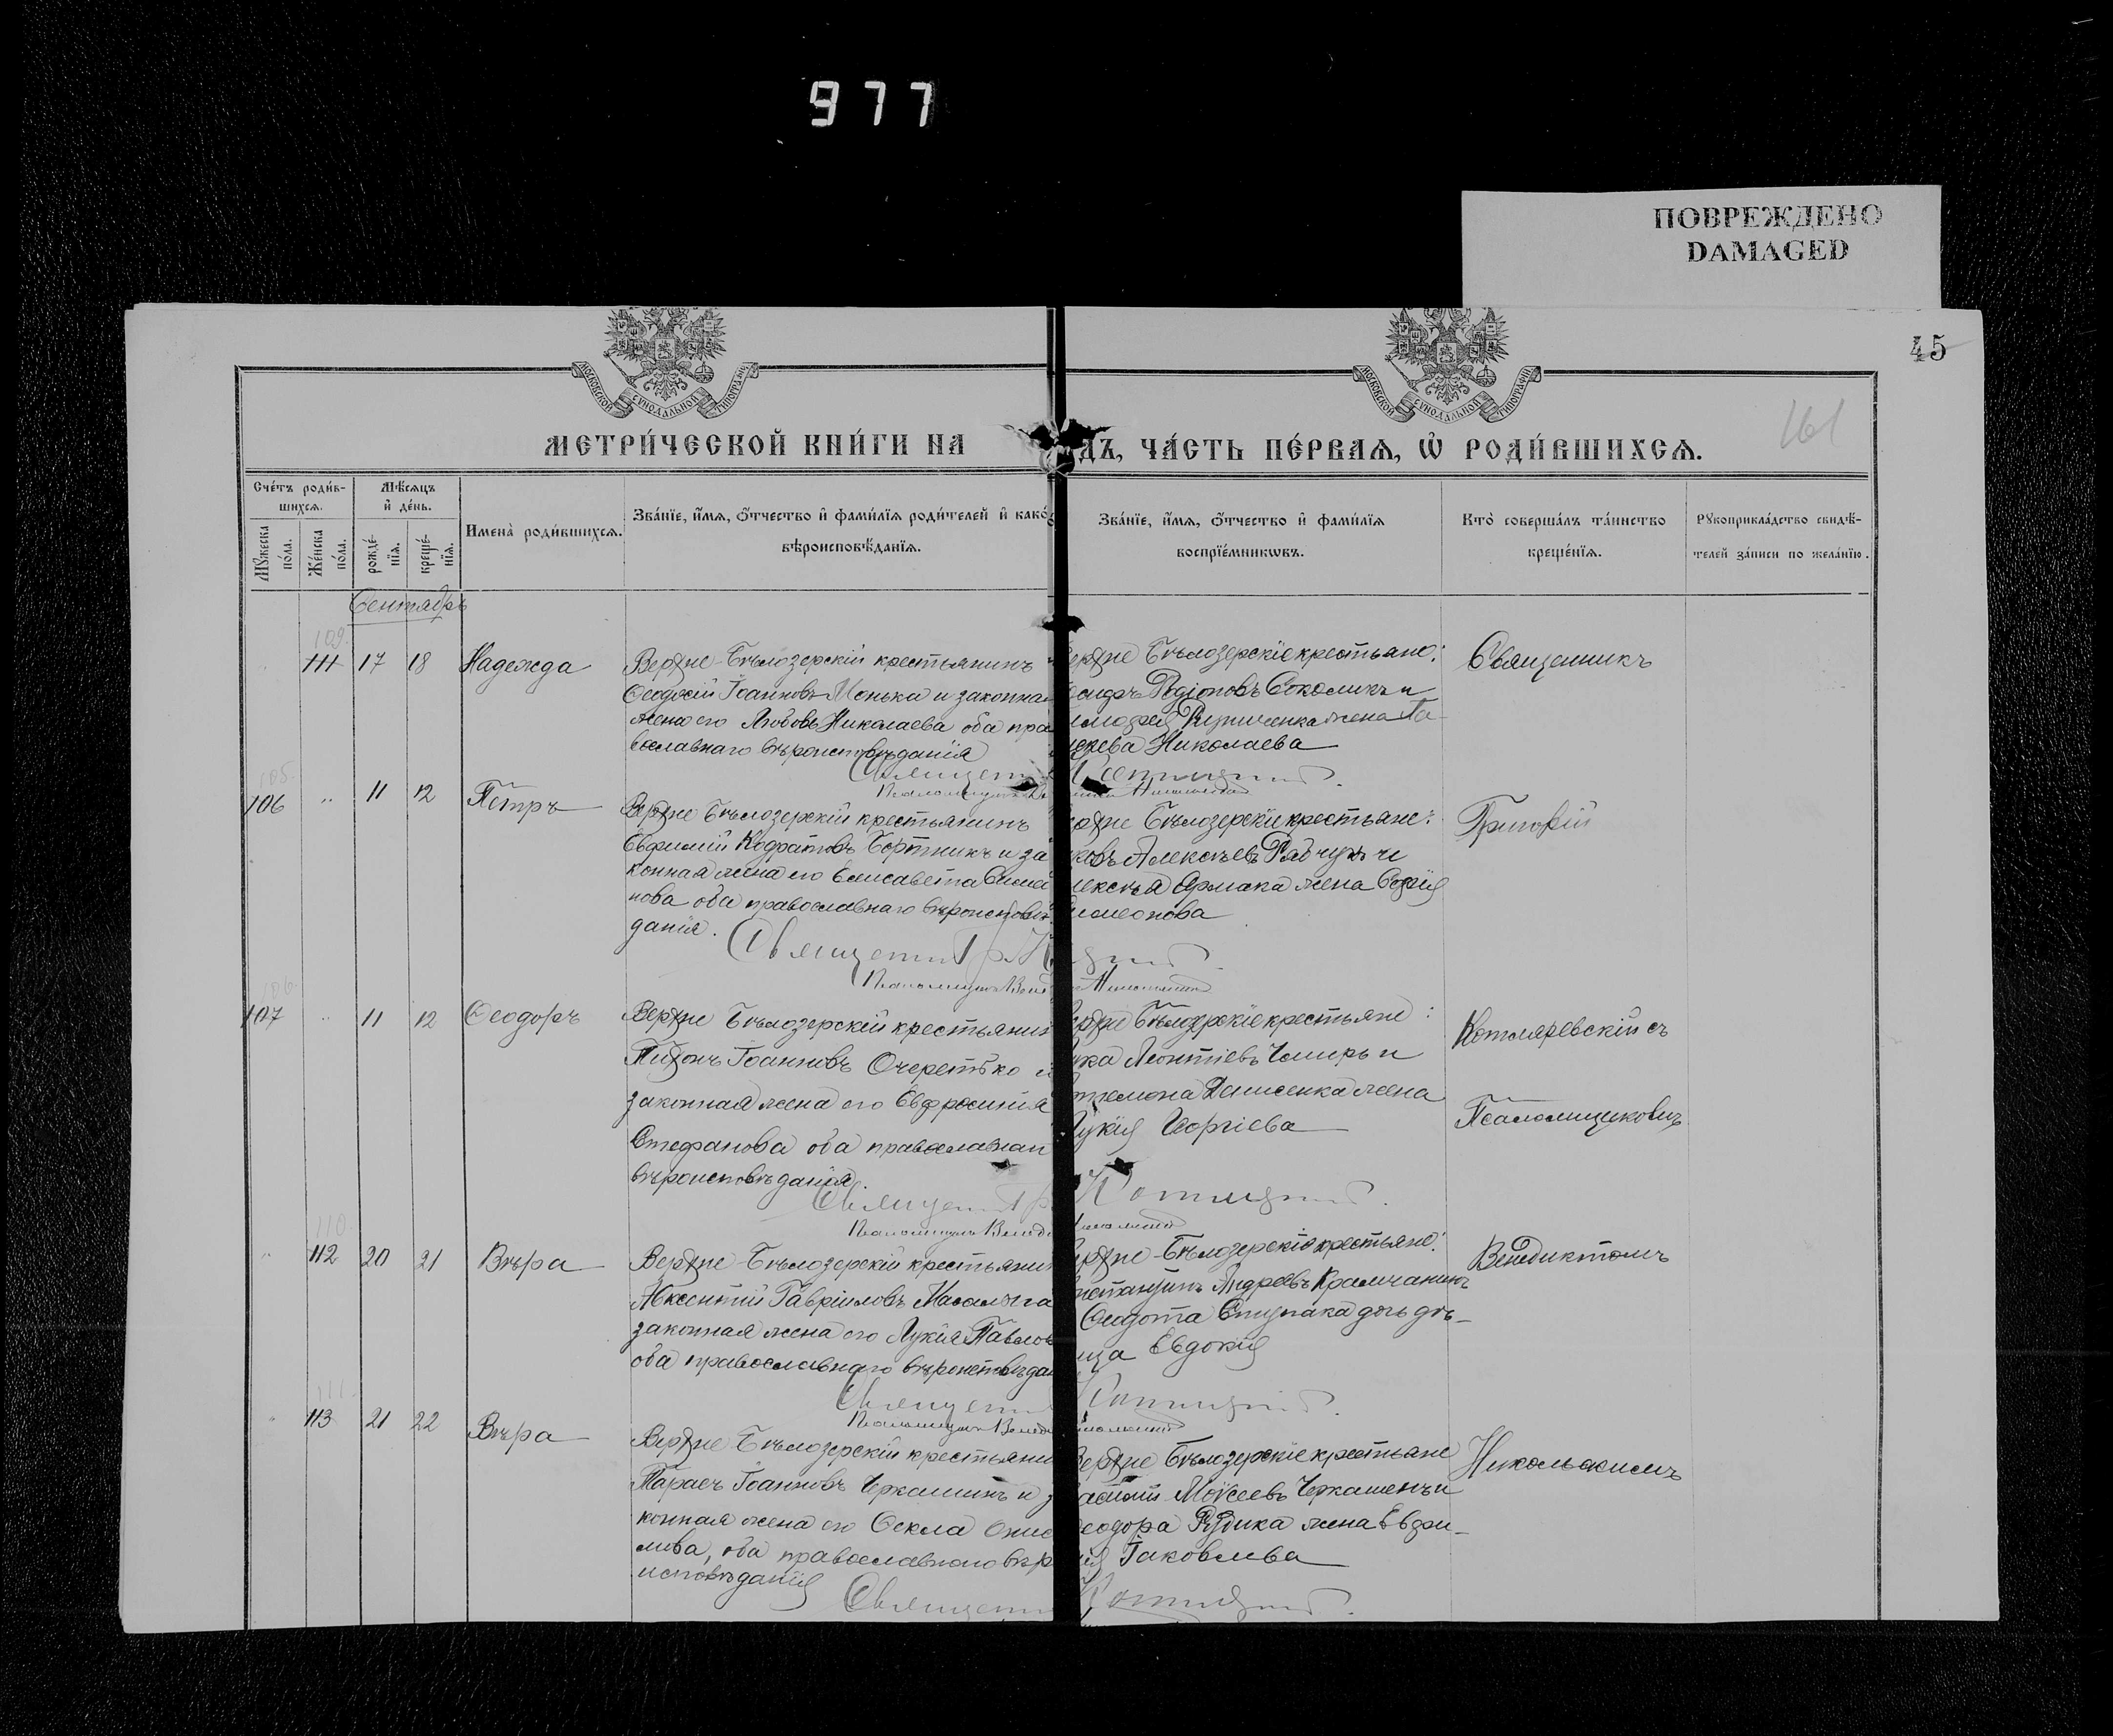 977
ПОВРЕЖДЕНО
DAMAGED
45
161
МОСКОВСКОЙ СѴНОДАЛЬНОЙ ТИПОГРАФІИ
МОСКОВСКОЙ СѴНОДАЛЬНОЙ ТИПОГРАФІИ
МЕТРИ́ЧЕСКОЙ КНИ́ГИ НА
ДЪ, ЧА́СТЬ ПЕ́РВАѦ, Ѽ РОДИ́ВШИХСѦ.
Сче́тъ роди́в-
шихсѧ.
Мѣ́сѧцъ
и҆ де́нь.
Мꙋ́жеска
по́ла.
Же́нска
по́ла.
рожде́-
нїѧ.
креще́-
нїѧ.
Имена̀ роди́вшихсѧ.
Зва́нїе, и҆́мѧ, ѻ҆́тчество и҆ фами́лїѧ роди́телей и҆ како́
вѣроисповѣ́данїѧ.
Зва́нїе, и҆́мѧ, ѻ҆́тчество и҆ фами́лїѧ
воспрїе́мникѡвъ.
Кто̀ соверша́лъ та́инство
креще́нїѧ.
Рꙋкоприкла́дство свидѣ́-
телей за́писи по жела́нїю.
Сентябрь
109.
111 17 18 Надежда
Верхне-Бѣлозерскій крестьянинъ
Ѳеодосій Іоанновъ Монька и законная
жена его Любовь Николаева оба пра
вославнаго вѣроисповѣданія
Верхне Бѣлозерскіе крестьяне:
Родіоновъ Соколикъ и
жена Па-
Николаева
Священникъ
105.
106 „ 11 12 Петръ
Верхне Бѣлозерскій крестьянинъ
Евфимій Кодратовъ Бортникъ и за
конная жена его Елисавета Симео
нова оба православнаго вѣроисповѣ
данія.
Верхне Бѣлозерскіе крестьяне:
ковъ Алексѣевъ Рябчукъ и
лексѣя Ярмака жена Софія
Симеонова
Григорій
106.
107 „ 11 12 Ѳеодоръ
Верхне Бѣлозерскій крестьянинъ
Пихонъ Іоанновъ Очеретько и
законная жена его Евфросинія
Стефанова оба православнаго
вѣроисповѣданія.
Верхне Бѣлозерскіе крестьяне:
ука Леонтіевъ Чмиръ и
ртемона Денисенка жена
Лукія Георгіева
Котляревскій съ
Псаломщикомъ
110.
„ 112 20 21 Вѣра
Верхне-Бѣлозерскій крестьянинъ
Авксентій Гавріиловъ Масалыга
законная жена его Лукія Павлов
оба православнаго вѣроисповѣдан
Верхне-Бѣлозерскіе крестьяне:
нстантинъ Андреевъ Крамчанинъ
Ѳеодота Ступака дочь дѣ-
вица Евдокія
Венедиктомъ
111.
„ 113 21 22 Вѣра
Верхне Бѣлозерскій крестьянин
Тарасъ Іоанновъ Черкашинъ и за
конная жена его Ѳекла Онис
мова, оба православнаго вѣро
исповѣданія
Верхне Бѣлозерскіе крестьяне
Моѵсеевъ Черкашенъ и
Ѳеодора Рудика жена Евфи-
мія Іаковлева
Никольскимъ